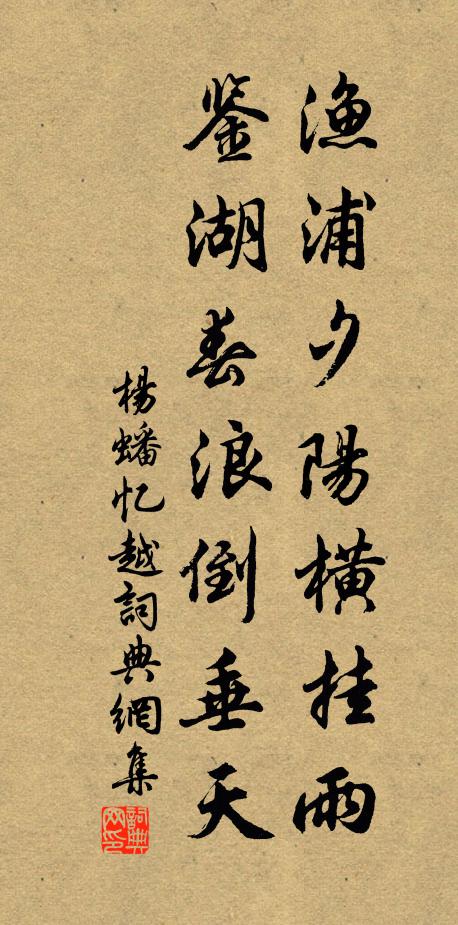 漁浦夕陽橫挂雨
鉴湖春浪倒垂天
楊蟠忆越詞典網集
詞典网印